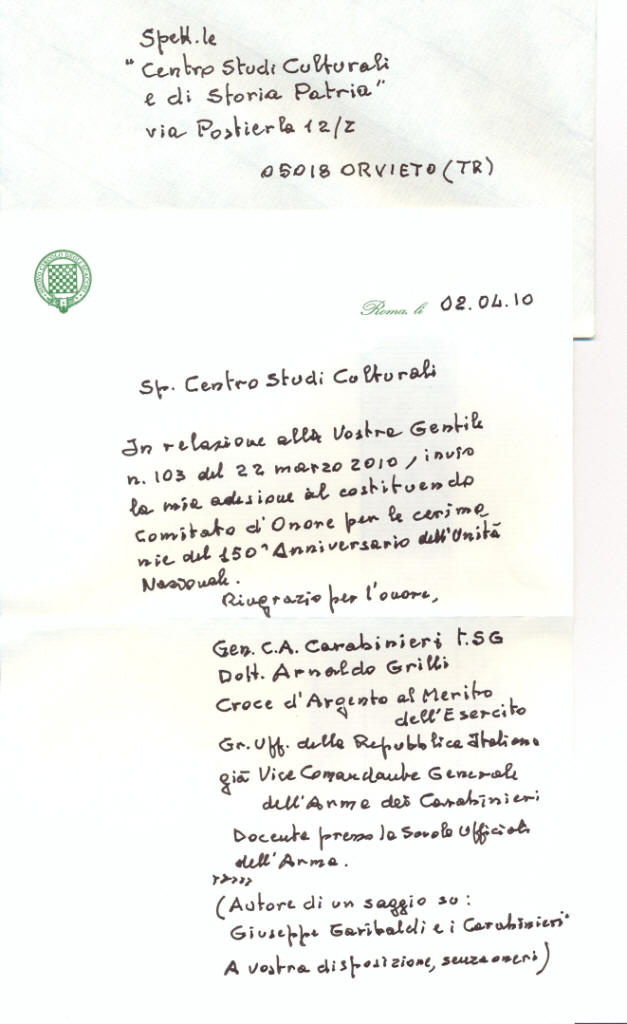 Spett.le
"Centro Studi Culturali
e di Storia Patria"
via Postierla 12/Z
05018 ORVIETO (TR)
NUOVO CIRCOLO DEGLI SCACCHI
Roma, li 02.04.10
Sp. Centro Studi Culturali
In relazione alla Vostra Gentile
n. 103 del 22 marzo 2010, invio
la mia adesione al costituendo
Comitato d'Onore per le cerimo
nie del 150° Anniversario dell'Unità
Nazionale.
Ringrazio per l'onore,
Gen. C.A. Carabinieri t.SG
Dott. Arnaldo Grilli
Croce d'Argento al Merito
dell'Esercito
Gr. Uff. della Repubblica Italiana
già Vice Comandante Generale
dell'Arma dei Carabinieri
Docente presso la Scuola Ufficiali
dell'Arma.
(Autore di un saggio su:
Giuseppe Garibaldi e i Carabinieri"
A vostra disposizione, senza oneri)